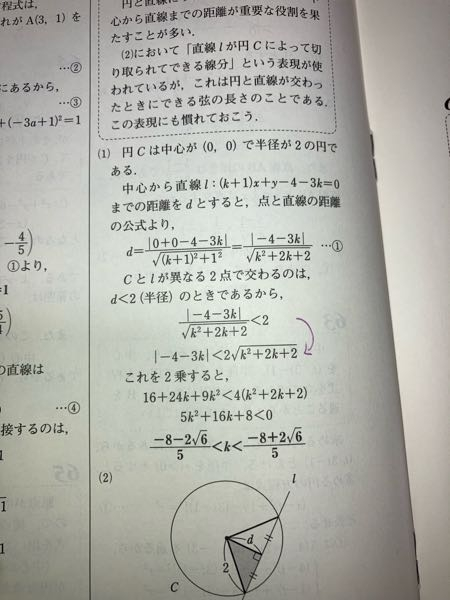 程式は,
れが A(3, 1) を
…②
にあるから,
…③
+(-3a+1)²=1
-4/5)
①より,
の直線は
…④
接するのは,
円と直線
心から直線までの距離が重要な役割を果
たすことが多い.
(2)において「直線 l が円 C によって切
り取られてできる線分」という表現が使
われているが, これは円と直線が交わっ
たときにできる弦の長さのことである.
この表現にも慣れておこう.
(1) 円 C は中心が (0, 0) で半径が 2 の円で
ある.
中心から直線 l : (k+1)x+y-4-3k=0
までの距離を d とすると, 点と直線の距離
の公式より,
d=|0+0-4-3k|/√((k+1)²+1²)=|-4-3k|/√(k²+2k+2) …①
C と l が異なる 2 点で交わるのは,
d<2 (半径) のときであるから,
|-4-3k|/√(k²+2k+2)<2
|-4-3k|<2√(k²+2k+2)
これを 2 乗すると,
16+24k+9k²<4(k²+2k+2)
5k²+16k+8<0
(-8-2√6)/5<k<(-8+2√6)/5
(2)
l
d
2
C